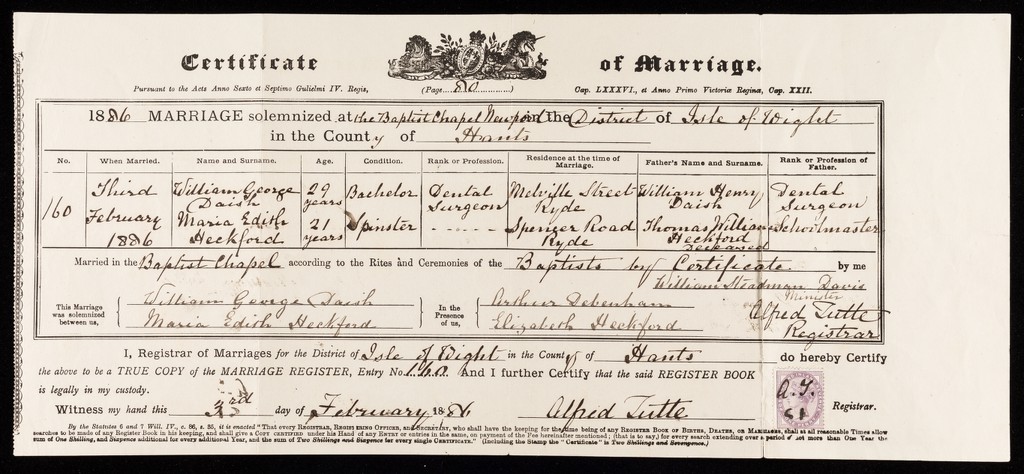 Certificate of Marriage.
Pursuant to the Acts Anno Sexto et Septimo Gulielmi IV. Regis, (Page 80) Cap. LXXXVI., et Anno Primo Victoriæ Reginæ, Cap. XXII.
1886 MARRIAGE solemnized at the Baptist Chapel Newport in the District of Isle of Wight
in the County of Hants
No. When Married. Name and Surname. Age. Condition. Rank or Profession. Residence at the time of Marriage. Father's Name and Surname. Rank or Profession of Father.
160 Third February 1886
William George Daish 29 years Bachelor Dental Surgeon Melville Street Ryde William Henry Daish Dental Surgeon
Maria Edith Heckford 21 years Spinster - - - - - Spencer Road Ryde Thomas William Heckford Deceased Schoolmaster
Married in the Baptist Chapel according to the Rites and Ceremonies of the Baptists by Certificate by me
William Steadman Davis
Minister
This Marriage was solemnized between us, William George Daish In the Presence of us, Arthur Debenham Alfred Tutte
Maria Edith Heckford Elizabeth Heckford Registrar
I, Registrar of Marriages for the District of Isle of Wight in the County of Hants do hereby Certify
the above to be a TRUE COPY of the MARRIAGE REGISTER, Entry No. 160 And I further Certify that the said REGISTER BOOK
is legally in my custody.
A.T.
Witness my hand this 3rd day of February 1886 Alfred Tutte Registrar.
By the Statutes 6 and 7 Will. IV., c. 86, s. 35, it is enacted "That every REGISTRAR, REGISTERING OFFICER, and SECRETARY, who shall have the keeping for the time being of any REGISTER BOOK OF BIRTHS, DEATHS, OR MARRIAGES, shall at all reasonable Times allow
searches to be made of any Register Book in his keeping, and shall give a COPY CERTIFIED under his Hand of any ENTRY or entries in the same, on payment of the Fee hereinafter mentioned; (that is to say,) for every search extending over a period of not more than One Year the
sum of One Shilling, and Sixpence additional for every additional Year, and the sum of Two Shillings and Sixpence for every single CERTIFICATE." (Including the Stamp the "Certificate" is Two Shillings and Sevenpence.)